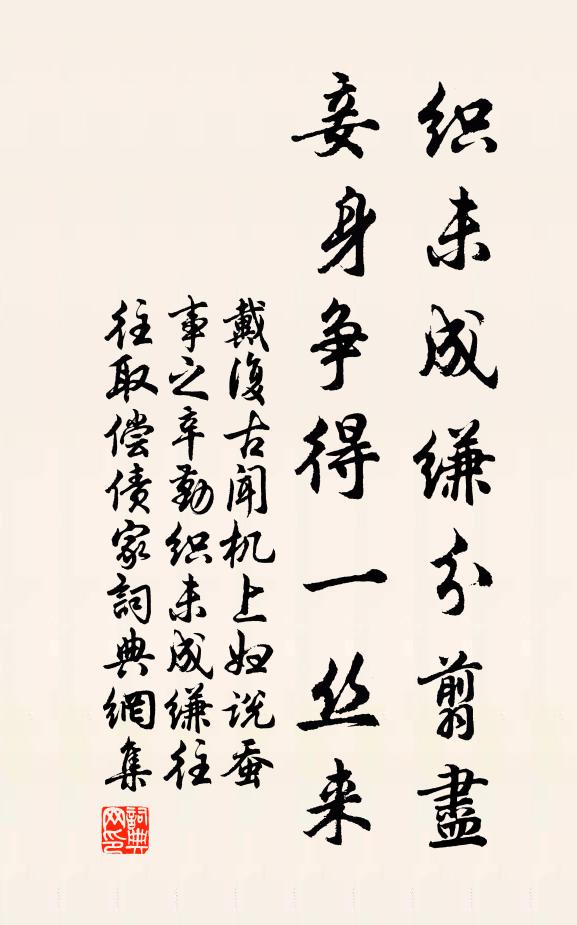 织未成缣分翦盡
妾身争得一丝来
戴復古闻机上妇说蚕
事之辛勤织未成缣往
往取偿债家詞典網集
詞典網印